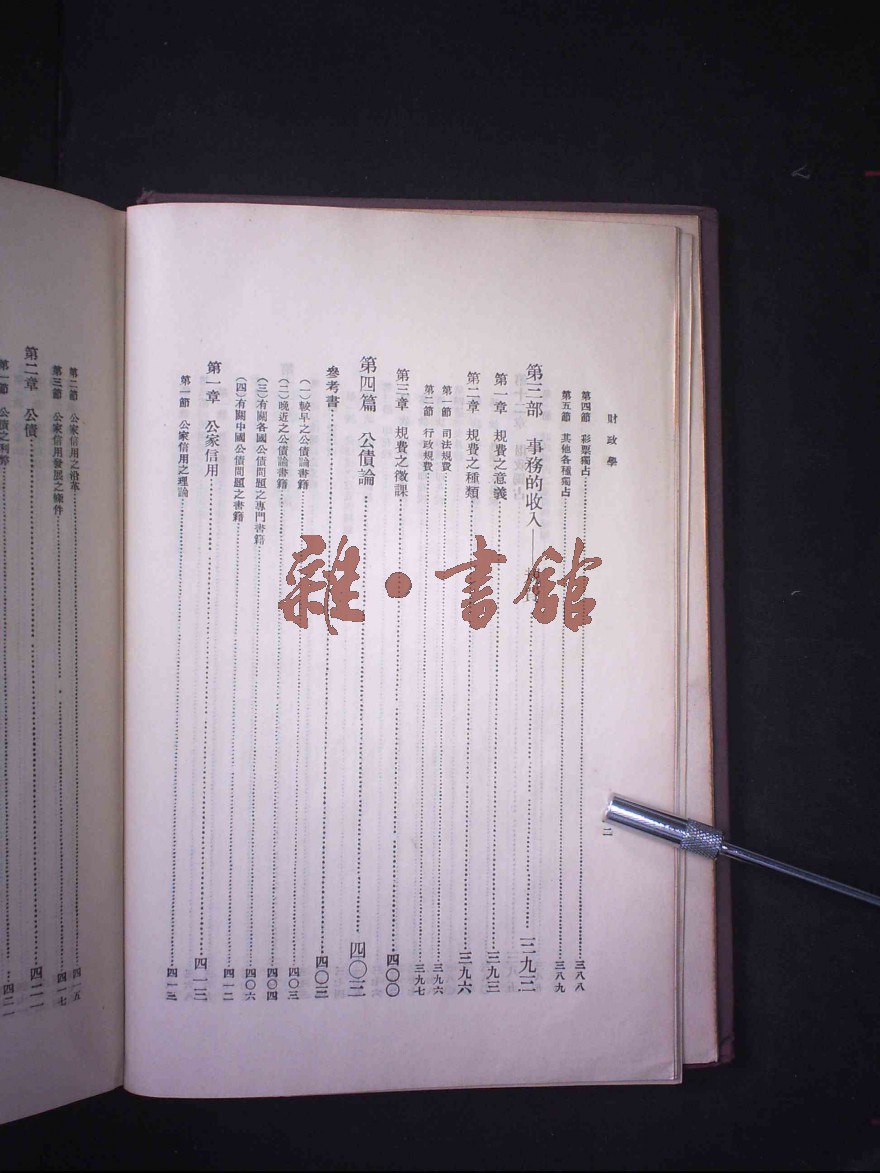 財政學
二
第四節 彩票獨占……三八八
第五節 其他各種獨占……三八九
第三部 事務的收入——……三九三
第一章 規費之意義……三九三
第二章 規費之種類……三九六
第一節 司法規費……三九六
第二節 行政規費……三九七
第三章 規費之徵課……四〇〇
第四篇 公債論……四〇三
參考書……四〇三
(一)較早之公債論書籍……四〇三
(二)晚近之公債論書籍……四〇四
(三)有關各國公債問題之專門書籍……四〇六
(四)有關中國公債問題之書籍……四一二
第一章 公家信用……四一三
第一節 公家信用之理論……四一三
第二節 公家信用之沿革……四一五
第三節 公家信用發展之條件……四一七
第二章 公債……四二一
第一節 公債之利弊……四二一
雜·書館